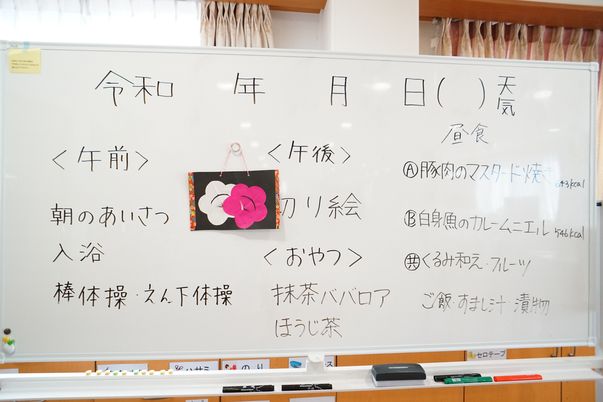 令和 年 月 日( )天気
<午前>
朝のあいさつ
入浴
棒体操・えん下体操
<午後>
切り絵
<おやつ>
抹茶ババロア
ほうじ茶
昼食
Ⓐ豚肉のマスタード焼き
Ⓑ白身魚のカレームニエル 546kcal
㊓くるみ和え・フルーツ
ご飯・すまし汁 漬物
ハサミ
のり
セロテープ